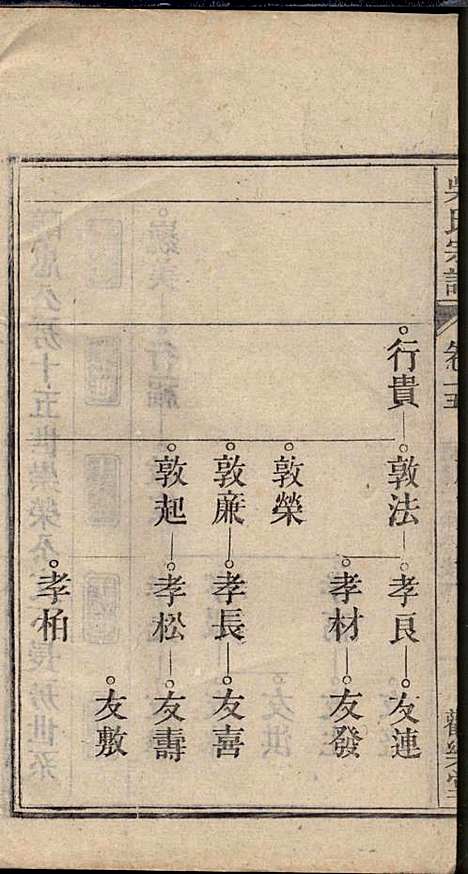 吳氏宗譜
卷十五
行貴
敦法
孝良
友連
孝材
友發
敦榮
敦廉
孝長
友喜
敦起
孝松
友壽
友敷
孝柏